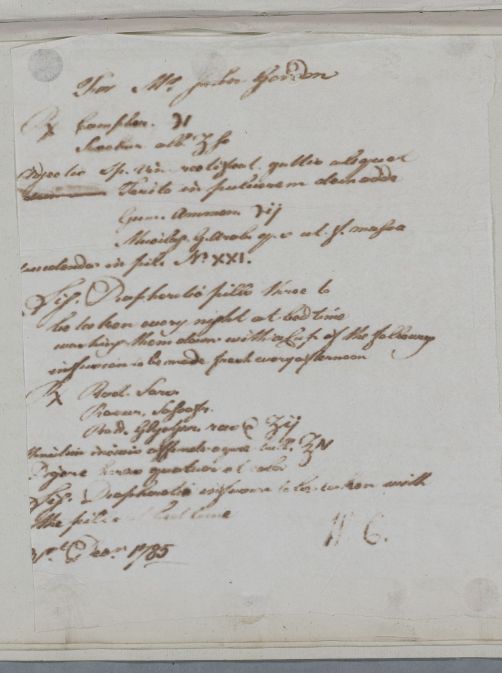 For Mr John Gordon
Rx Camphor. ʒi
Sacchar alb. ʒſs
Injectis Sp. vin rectificat. guttis aliquot
Terito in pulverem dein adde
Gum. Ammon ʒij
Mucilag. G. Arab. q. s. ut f. massa
in pil. No. XXI.
Sig. Diaphoretic pills three to
be taken every night at bed time
working them down with a Cup of the following
infusion to be made fresh every afternoon
Rx Rad. Sars.
Rasur. Sassafr.
Rad. Glycyrr. ras @ ʒij
affunde aquae
quatuor et cola
Sig. Diaphoretic infusion to be taken with
the pills at bed time
W C.
1785